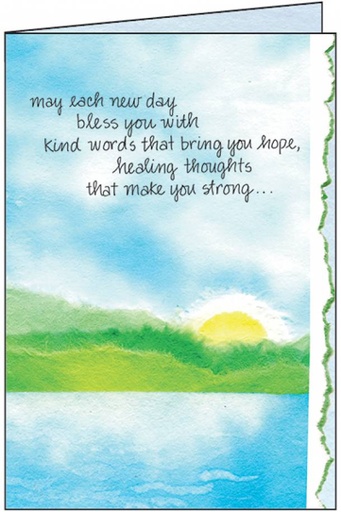 may each new day
bless you with
kind words that bring you hope,
healing thoughts
that make you strong...